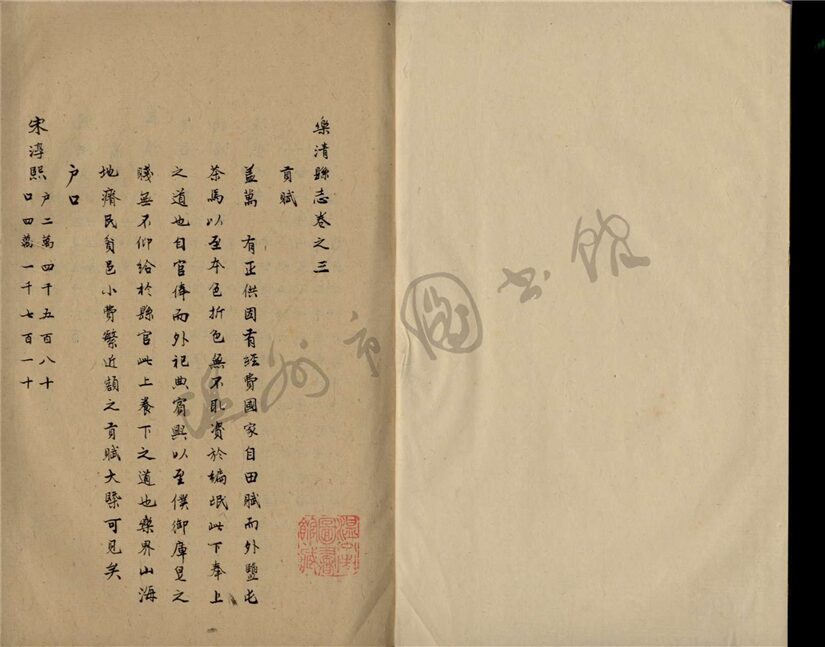 樂清縣志卷之三
貢賦
盖萬　有正供固有經費國家自田賦而外鹽屯
茶馬以至本色折色無不取資於編氓此下奉上
之道也自官俸而外祀典賓興以至僕御庫皂之
賤無不仰給於縣官此上養下之道也樂界山海
地瘠民貧邑小費繁近額之貢賦大槩可見矣
户口
宋淳熙
户二萬四千五百八十
口四萬一千七百一十
温州市圖书館